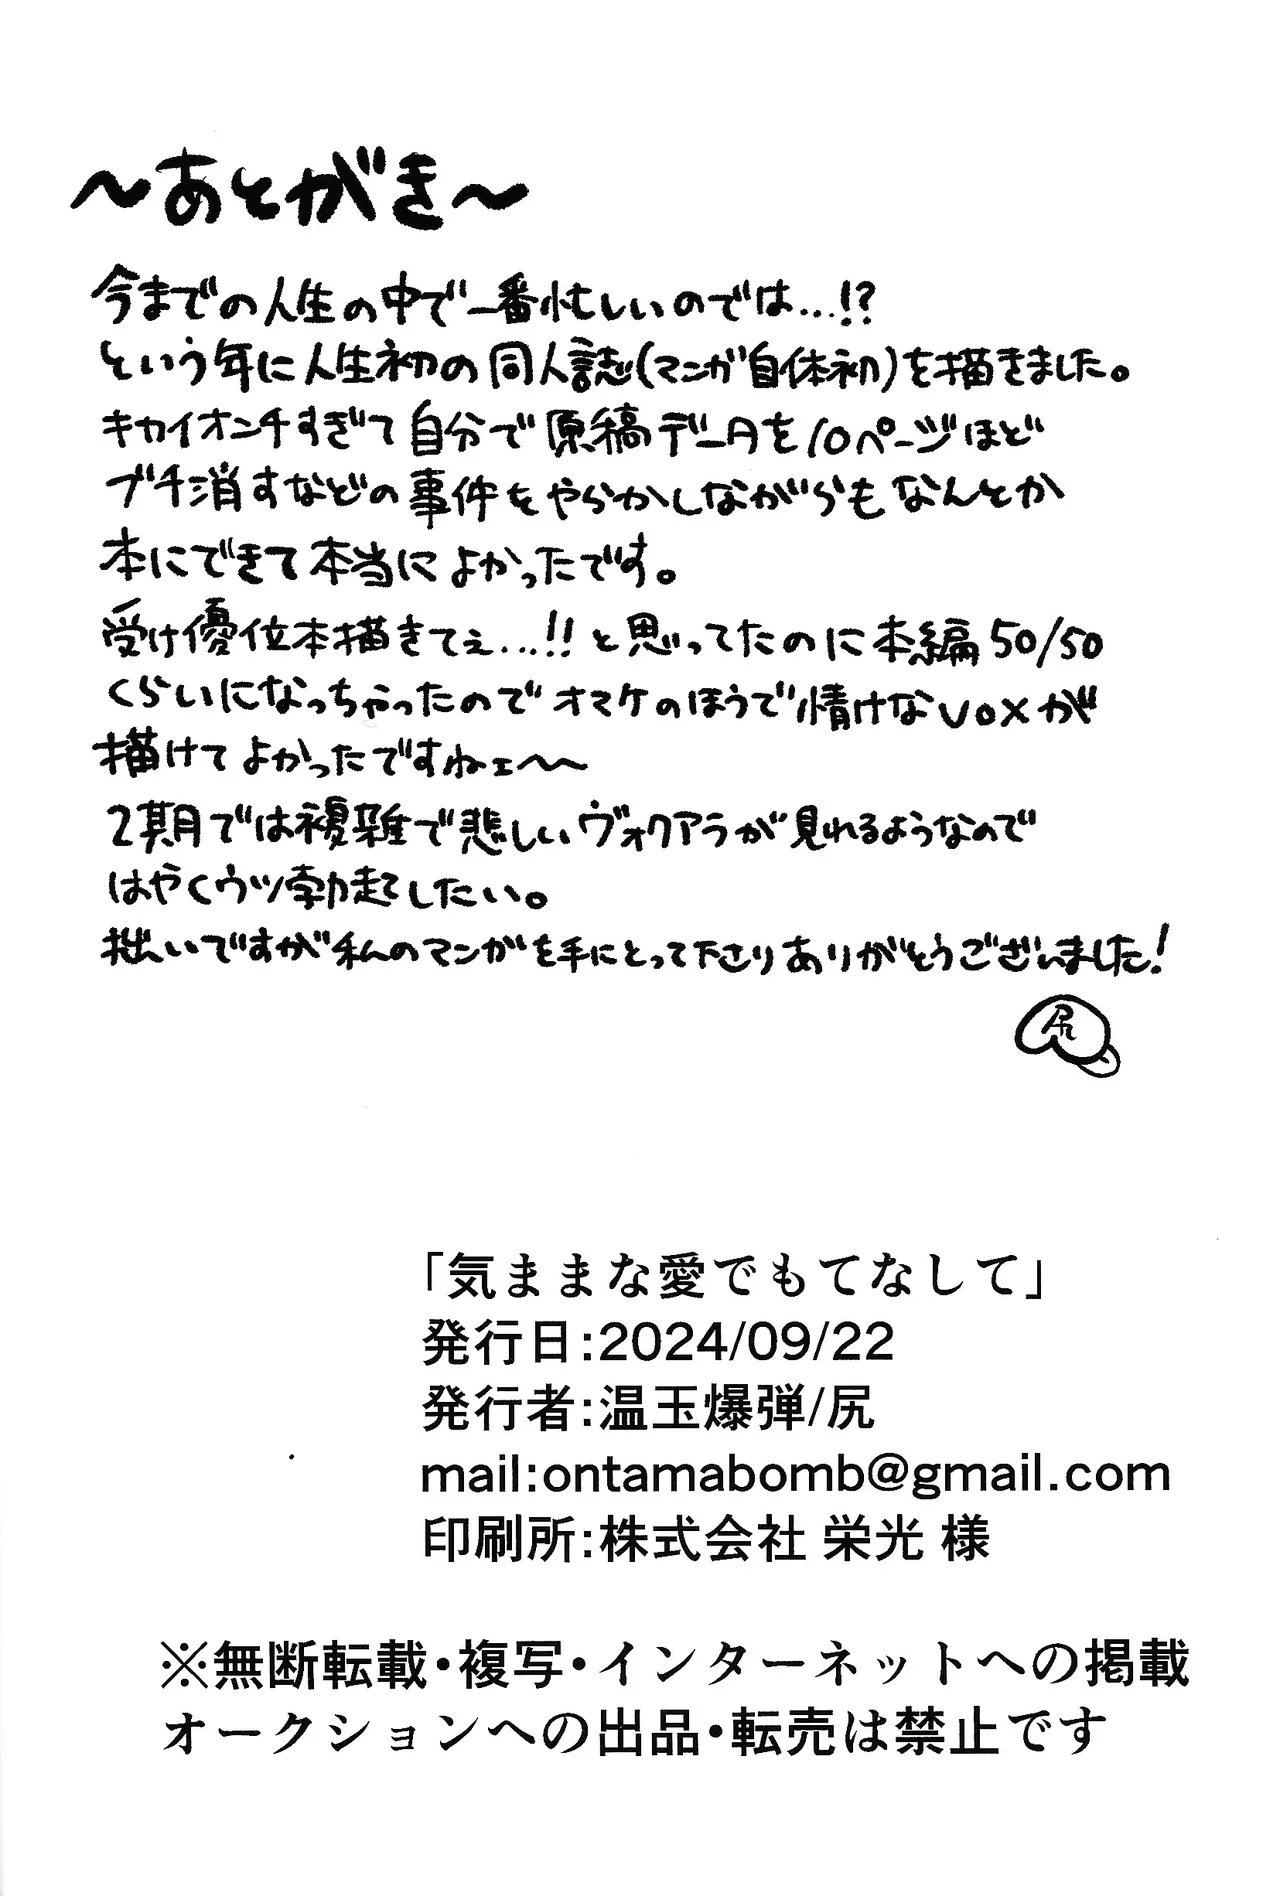 ～あとがき～
今までの人生の中で一番忙しいのでは…!?
という年に人生初の同人誌(マンガ自体初)を描きました。
キカイオンチすぎて自分で原稿データを10ページほど
ブチ消すなどの事件をやらかしながらもなんとか
本にできて本当によかったです。
受け優位本描きてぇ…!!と思ってたのに本編50/50
くらいになっちゃったのでオマケのほうで情けなvoxが
描けてよかったですねェ～～
2期では複雑で悲しいヴォクアラが見れるようなので
はやくウツ勃起したい。
拙いですが私のマンガを手にとって下さりありがとうございました!
尻
「気ままな愛でもてなして」
発行日:2024/09/22
発行者:温玉爆弾/尻
mail:ontamabomb@gmail.com
印刷所:株式会社 栄光 様
※無断転載・複写・インターネットへの掲載
オークションへの出品・転売は禁止です